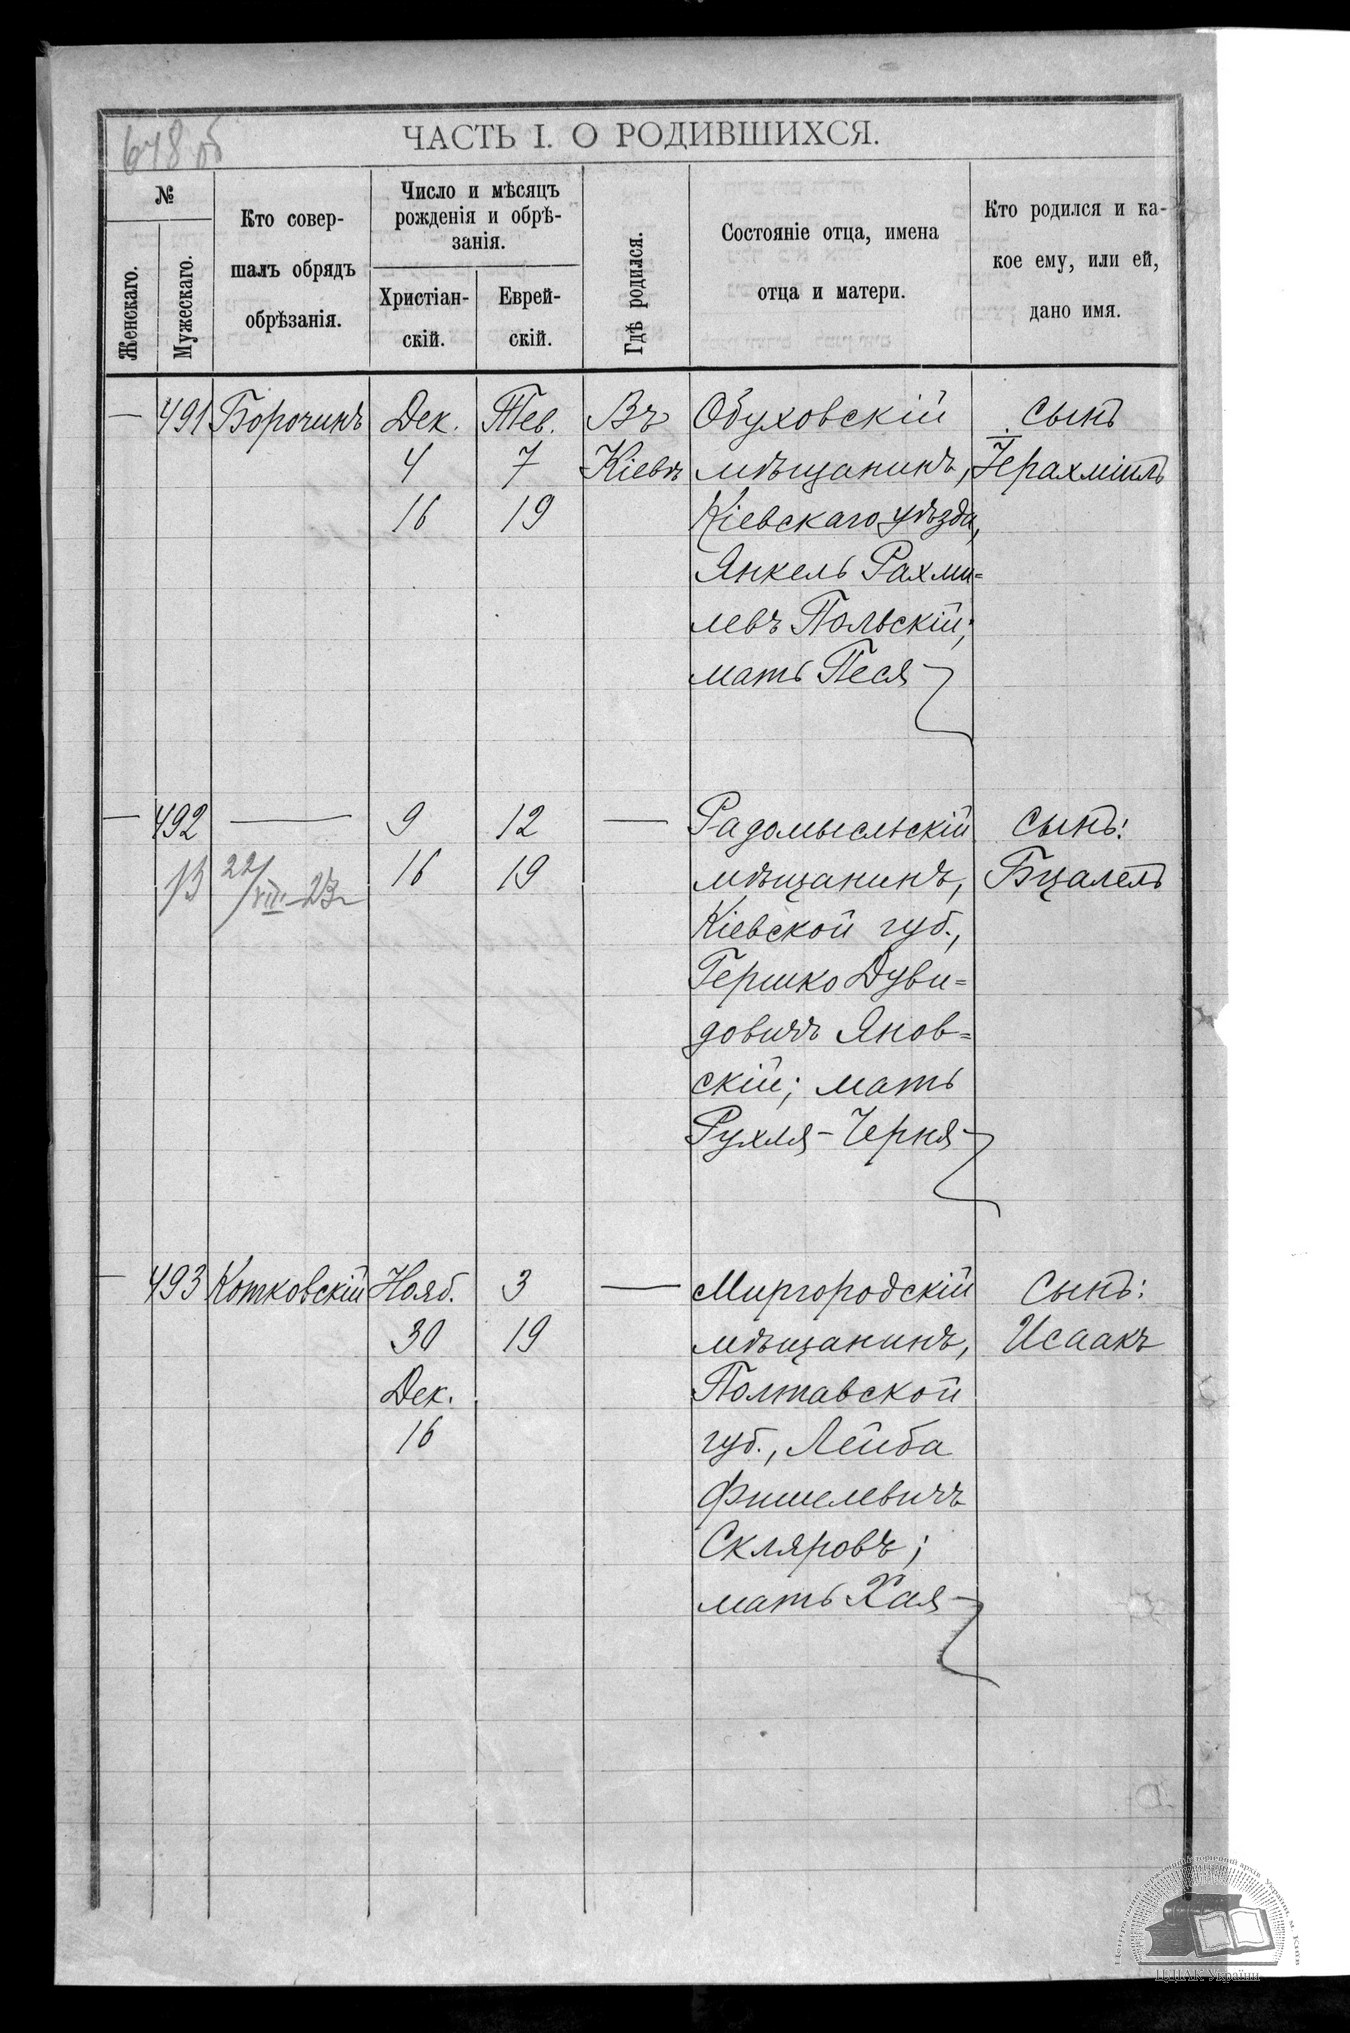 648 об
ЧАСТЬ I. О РОДИВШИХСЯ.
№
Женскаго.
Мужескаго.
Кто совер-
шалъ обрядъ
обрѣзанія.
Число и мѣсяцъ
рожденія и обрѣ-
занія.
Христіан-
скій.
Еврей-
скій.
Гдѣ родился.
Состояніе отца, имена
отца и матери.
Кто родился и ка-
кое ему, или ей,
дано имя.
— 491 Борочинъ Дек. Тев. Въ Обуховскій сынъ
4 7 Кіевѣ мѣщанинъ, Іерахміилъ
16 19 Кіевскаго уѣзда,
Янкель Рахми=
левъ Польскій;
мать Песя
— 492 — 9 12 — Радомысльскій сынъ:
22/VII-23 16 19 мѣщанинъ, Бцалелъ
Кіевской губ.,
Гершко Дуви=
довичъ Янов=
скій; мать
Рухля-Черня
— 493 Котковскій Нояб. 3 — Миргородскій сынъ:
30 19 мѣщанинъ, Исаакъ
Дек. Полтавской
16 губ., Лейба
Фишелевичъ
Скляровъ;
мать Хая
ЦДІАК України